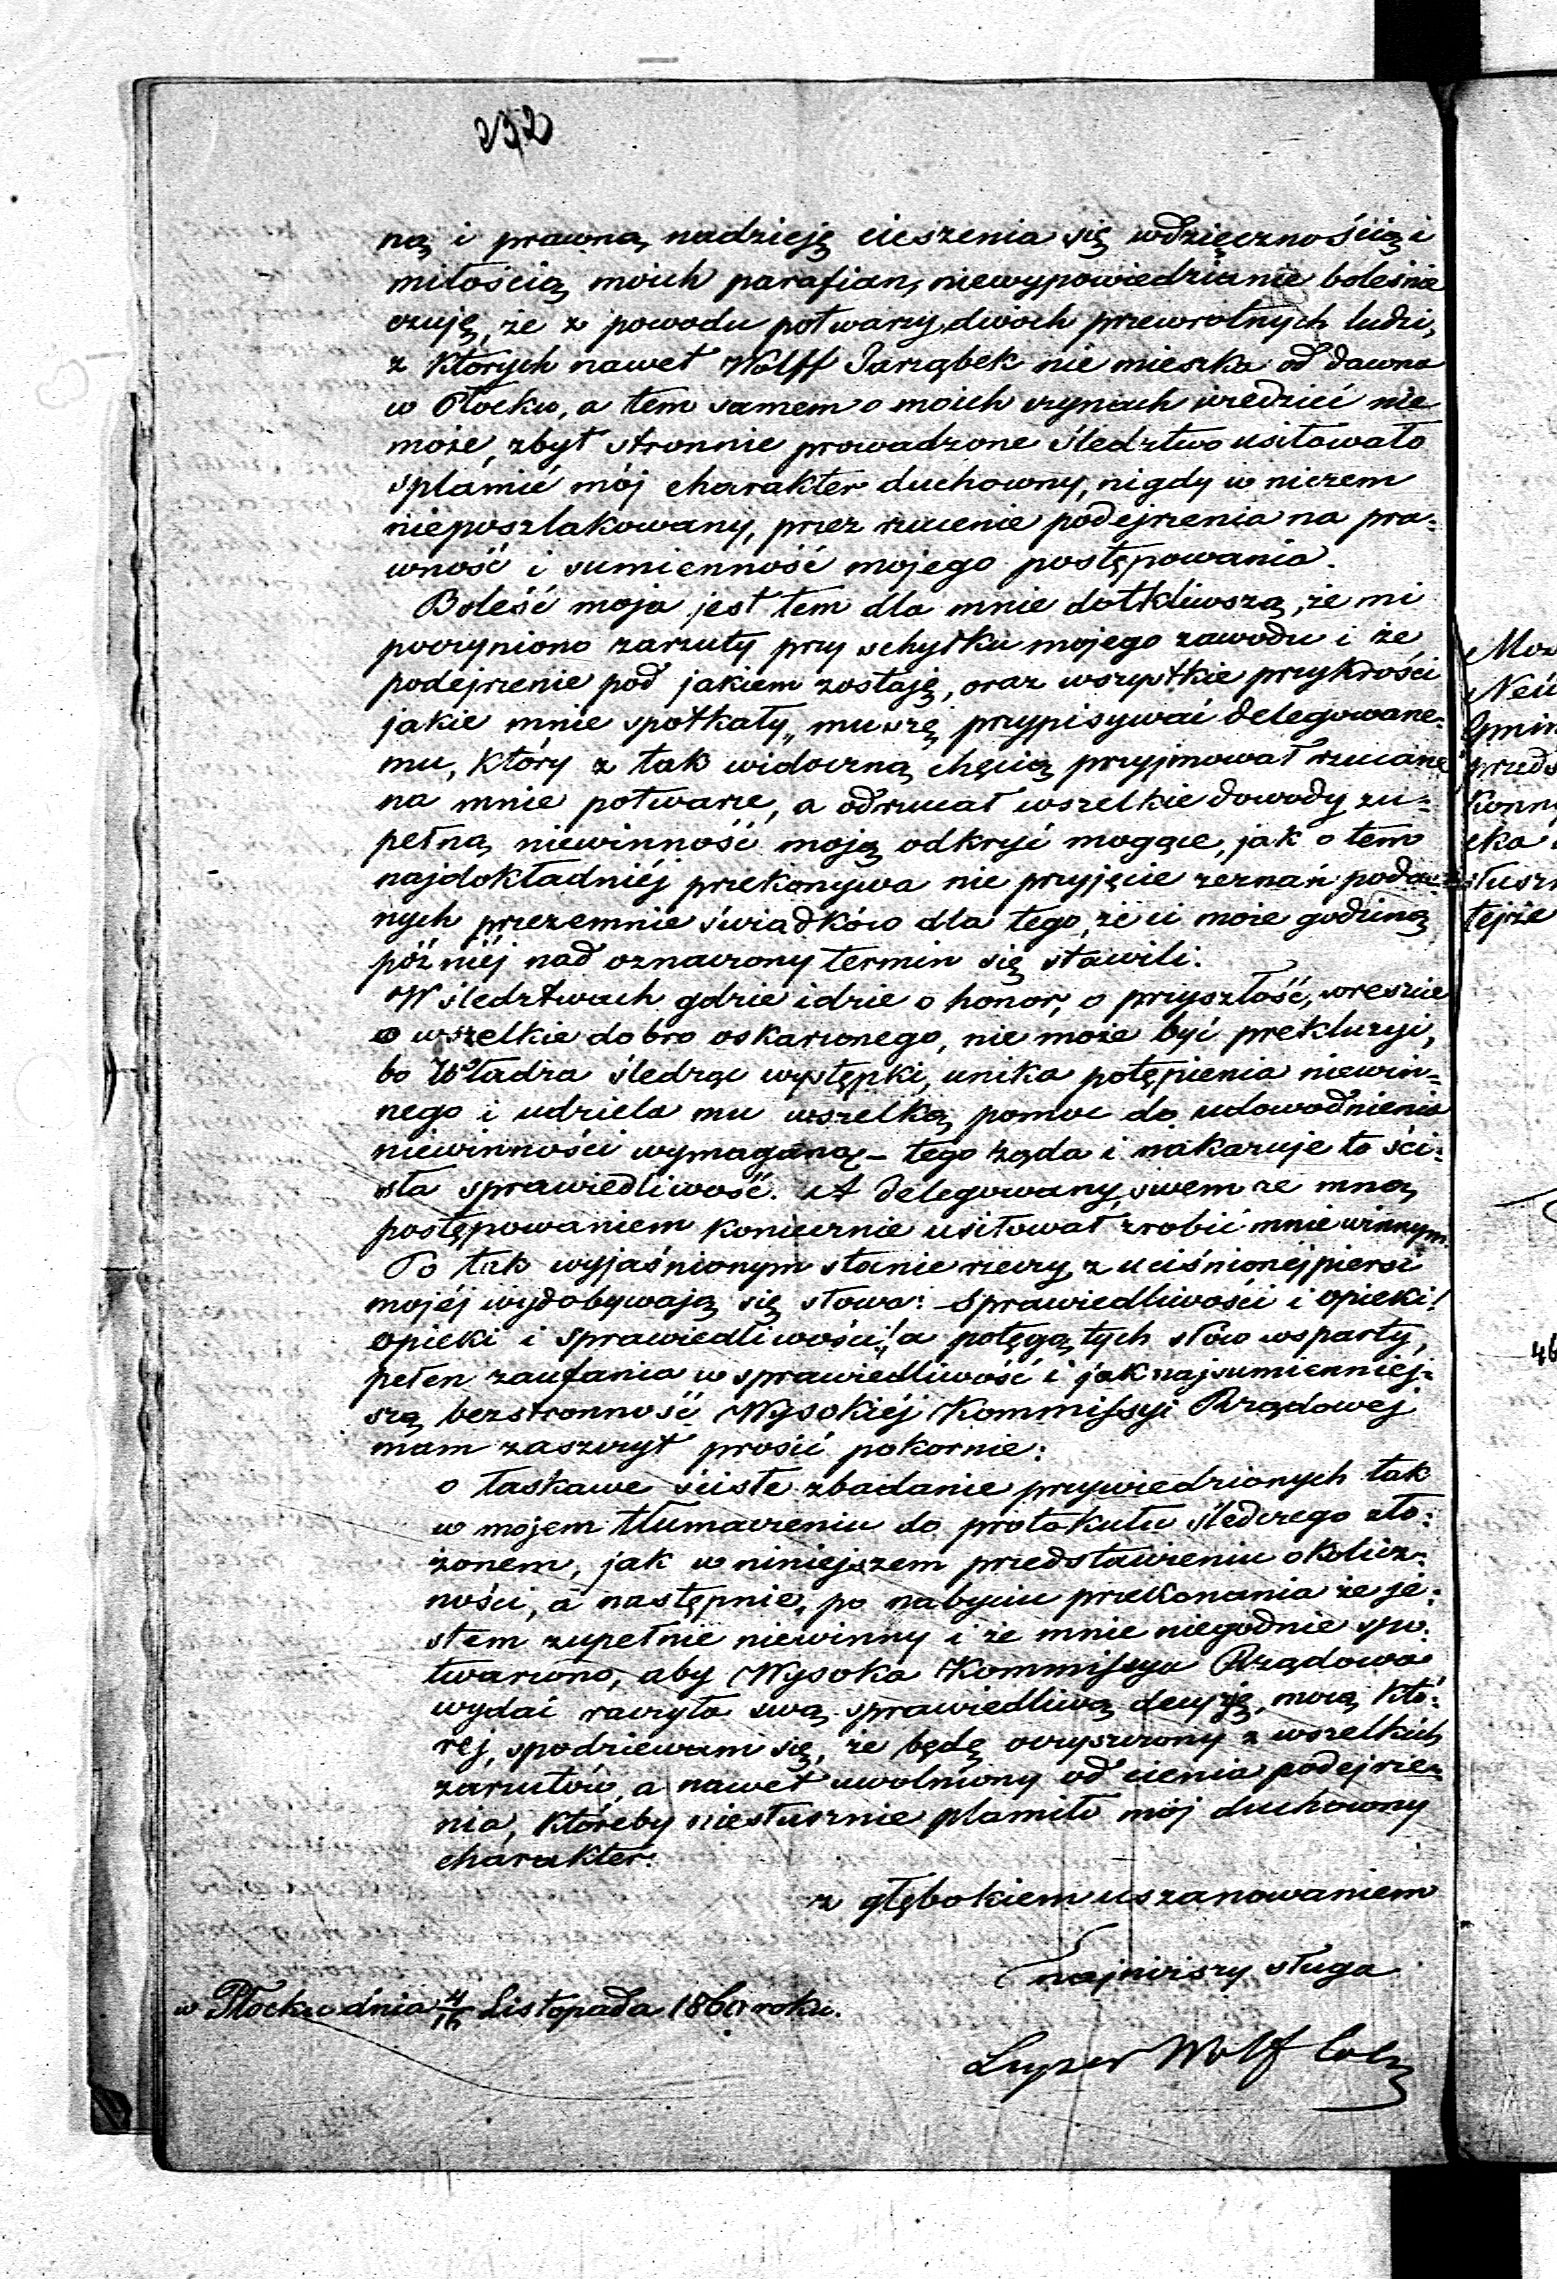 232
ną i prawną nadzieję cieszenia się wdzięcznością i
miłością moich parafian, niewypowiedzianie boleśnie
czuję, że z powodu potwarzy dwóch przewrotnych ludzi,
z których nawet Wolff Jarząbek nie mieszka od dawna
w Płocku, a tem samem o moich czynach wiedzieć nie
może, zbyt stronnie prowadzone śledztwo usiłowało
splamić mój charakter duchowny, nigdy w niczem
nieposzlakowany, przez rzucenie podejrzenia na pra=
wność i sumienność mojego postępowania.
Boleść moja jest tem dla mnie dotkliwszą, że mi
poczyniono zarzuty przy schyłku mojego zawodu i że
podejrzenie pod jakiem zostaję, oraz wszystkie przykrości
jakie mnie spotkały, muszę przypisywać delegowane=
mu, który z tak widoczną chęcią przyjmował rzucane
na mnie potwarze, a odrzucał wszelkie dowody zu=
pełną niewinność moją odkryć mogące, jak o tem
najdokładniéj przekonywa nie przyjęcie zeznań poda=
nych przezemnie świadków dla tego, że ci może godziną
późniéj nad oznaczony termin się stawili.
W śledztwach gdzie idzie o honor, o przyszłość, wreszcie
o wszelkie dobro oskarżonego, nie może być prekluzyi,
bo Władza śledząc występki, unika potępienia niewin=
nego i udziela mu wszelką pomoc do udowodnienia
niewinności wymaganą – tego żąda i nakazuje to ści=
sła sprawiedliwość. A delegowany swem ze mną
postępowaniem koniecznie usiłował zrobić mnie winnym.
Po tak wyjaśnionym stanie rzeczy z uciśnionéj piersi
mojéj wydobywają się słowa: Sprawiedliwości i opieki!
opieki i sprawiedliwości! a potęgą tych słów wsparty,
pełen zaufania w sprawiedliwość i jak najsumienniej=
szą bezstronność Wysokiéj Kommissyi Rządowej
mam zaszczyt prosić pokornie:
o łaskawe ściste zbadanie przywiedzionych tak
w mojem tłumaczeniu do protokułu śledczego zło=
żonem, jak w niniejszem przedstawieniu okolicz=
ności, a następnie, po nabyciu przekonania że je=
stem zupełnie niewinny i że mnie niegodnie spo=
twarzono, aby Wysoka Kommissya Rządowa
wydać raczyła swą sprawiedliwą decyzję, mocą któ=
rej, spodziewam się, że będę oczyszczony z wszelkich
zarzutów, a nawet uwolniony od cienia podejrze=
nia, któreby niesłusznie plamiło mój duchowny
charakter.
z głębokiem uszanowaniem
najniższy sługa
w Płocku dnia 4/16 Listopada 1860 roku.
Luyzer Wolf Cohn